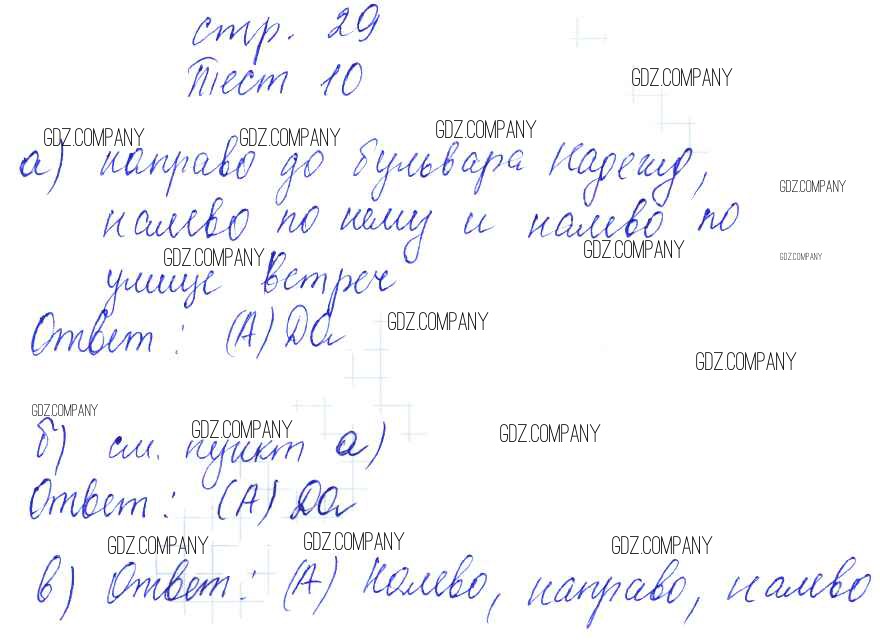 стр. 29
Тест 10
GDZ.COMPANY
GDZ.COMPANY GDZ.COMPANY GDZ.COMPANY
а) направо до бульвара Надежд,
GDZ.COMPANY
налево по нему и налево по
GDZ.COMPANY GDZ.COMPANY GDZ.COMPANY
улице встреч
Ответ: (А) Да
GDZ.COMPANY
GDZ.COMPANY
GDZ.COMPANY GDZ.COMPANY GDZ.COMPANY
б) см. пункт а)
Ответ: (А) Да
GDZ.COMPANY GDZ.COMPANY GDZ.COMPANY
в) Ответ: (А) Налево, направо, налево